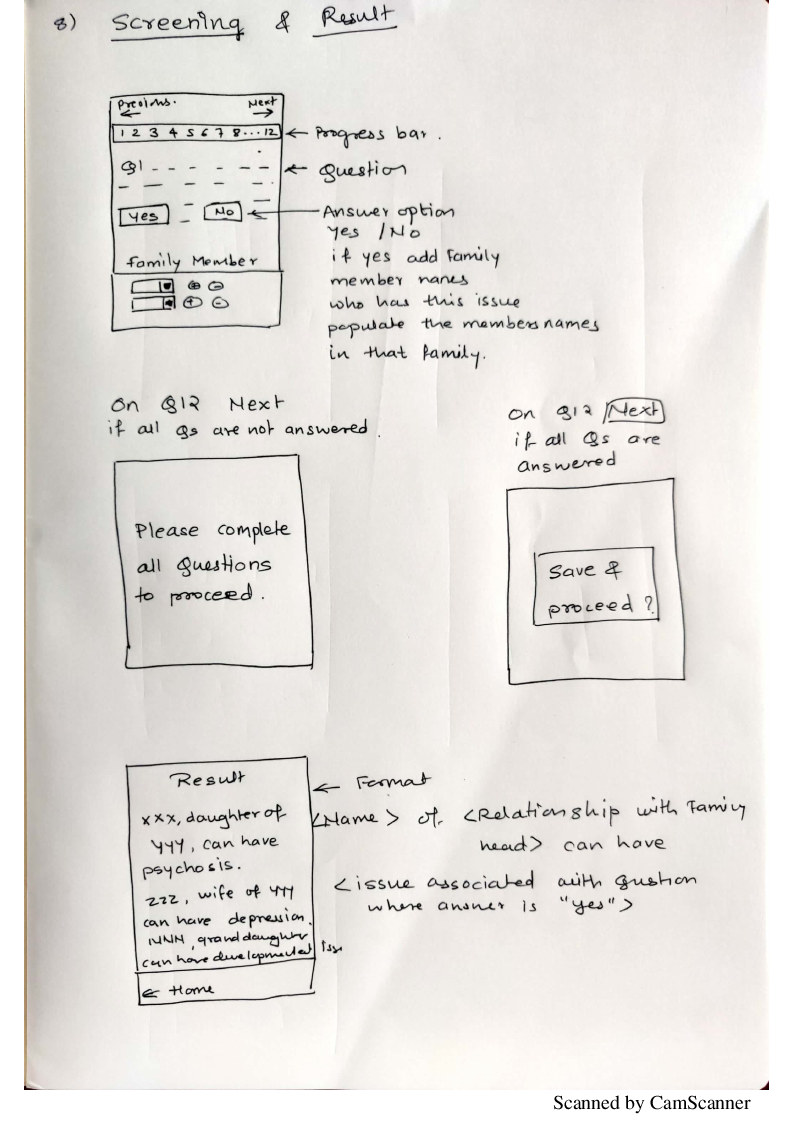 8) Screening & Result
Previous. Next
1 2 3 4 5 6 7 8...12
Progress bar.
Q1
Question
Yes No
Answer option
Yes / No
if yes add family
member names
who has this issue
populate the members names
in that family.
Family Member
On Q12 Next
if all Qs are not answered.
Please complete
all Questions
to proceed.
On Q12 / Next
if all Qs are
answered
Save &
proceed ?
Result
xxx, daughter of
YYY, can have
psychosis.
zzz, wife of YYY
can have depression.
NNN, grand daughter
can have developmental Iss
← Home
Format
<Name> of <Relationship with Family
head> can have
<issue associated with qustion
where answer is "yes">
Scanned by CamScanner